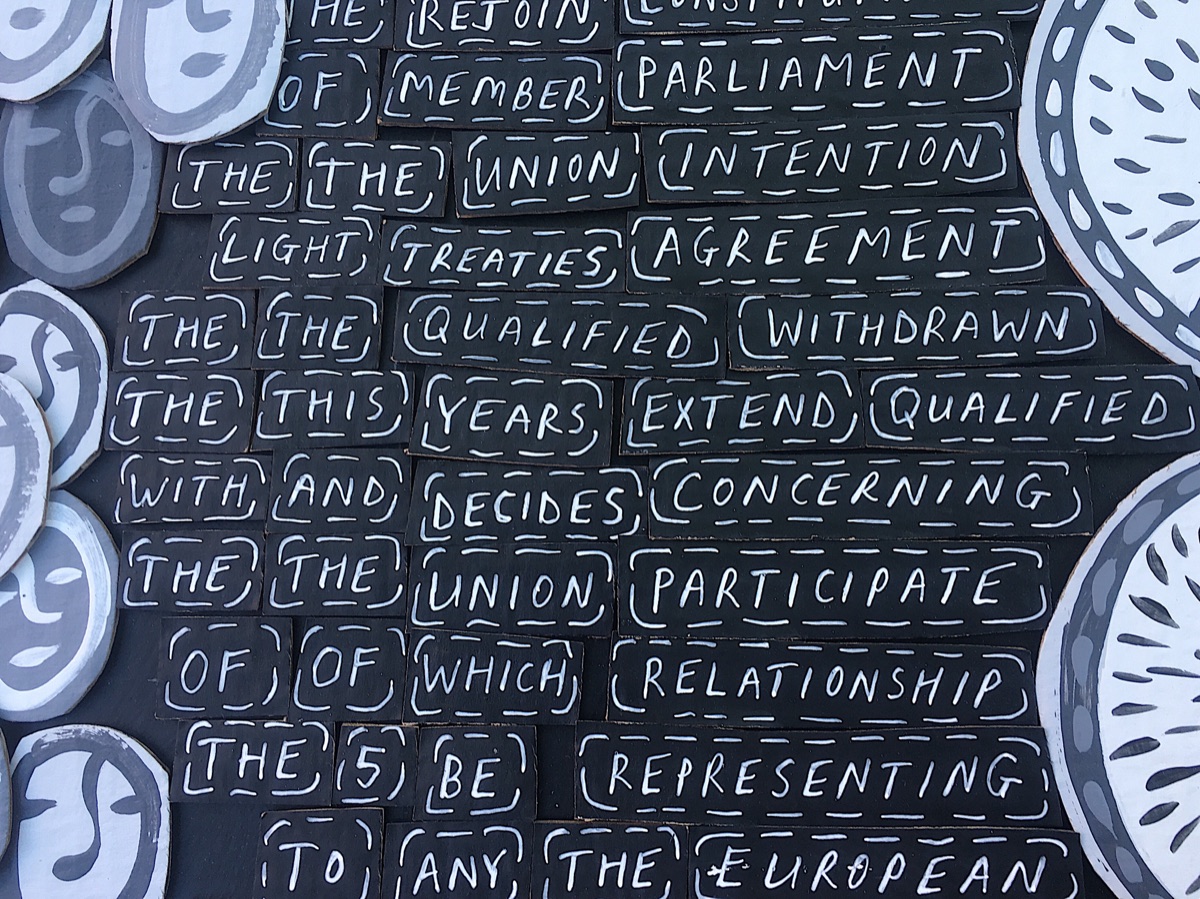 THE REJOIN
OF MEMBER PARLIAMENT
THE THE UNION INTENTION
LIGHT TREATIES AGREEMENT
THE THE QUALIFIED WITHDRAWN
THE THIS YEARS EXTEND QUALIFIED
WITH AND DECIDES CONCERNING
THE THE UNION PARTICIPATE
OF OF WHICH RELATIONSHIP
THE 5 BE REPRESENTING
TO ANY THE EUROPEAN